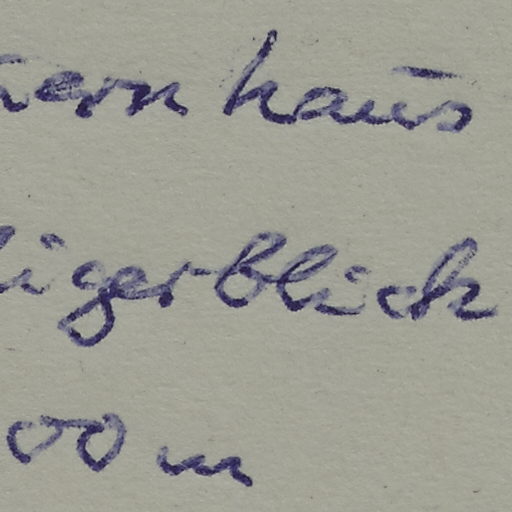 ernhaus
igerblick
00 m